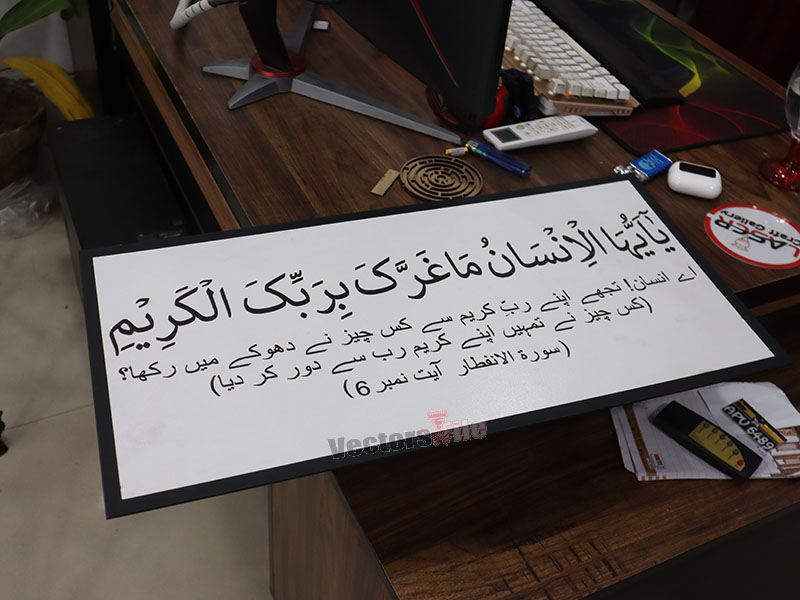 يٰٓاَيُّهَا الْاِنْسَانُ مَا غَرَّکَ بِرَبِّکَ الْکَرِيْمِ
اے انسان! تجھے اپنے ربِّ کریم سے کس چیز نے دھوکے میں رکھا؟
(کس چیز نے تمہیں اپنے کریم رب سے دور کر دیا)
(سورۃ الانفطار آیت نمبر 6)
LASER
Craft Gallery
APU 6489